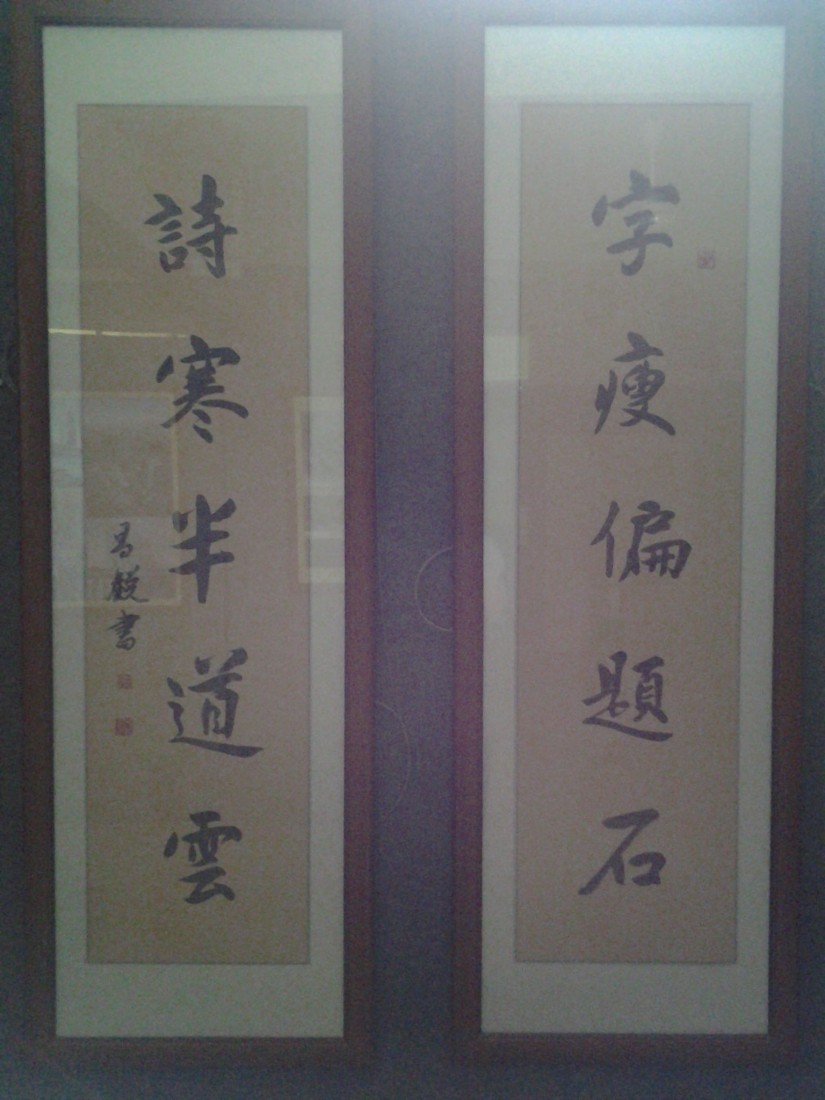 字瘦偏題石
詩寒半道雲